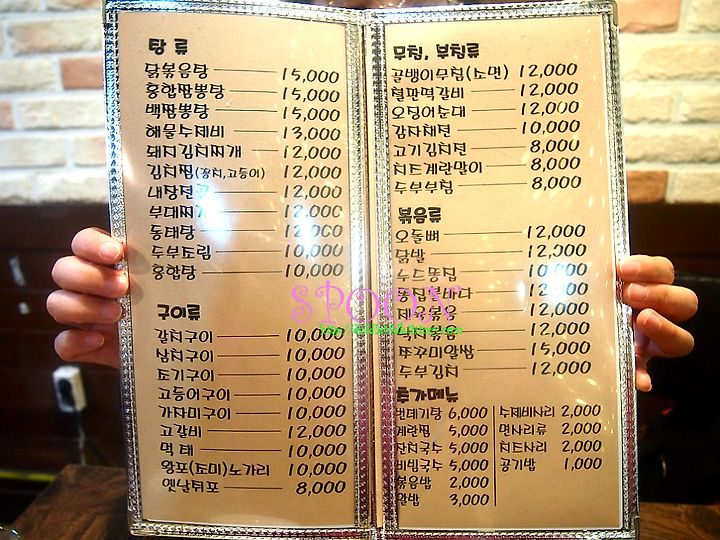 탕 류
닭볶음탕 15,000
홍합짬뽕탕 15,000
백짬뽕탕 15,000
해물수제비 13,000
돼지김치찌개 12,000
김치찜(꽁치,고등어) 12,000
내장전골 12,000
부대찌개 12,000
동태탕 12,000
두부조림 10,000
홍합탕 10,000
구이류
갈치구이 10,000
삼치구이 10,000
조기구이 10,000
고등어구이 10,000
가자미구이 10,000
고갈비 12,000
먹태 10,000
왕포(조미)노가리 10,000
옛날쥐포 8,000
무침, 부침류
골뱅이무침(소면) 12,000
철판떡갈비 12,000
오징어순대 12,000
감자채전 10,000
고기김치전 8,000
치즈계란말이 8,000
두부부침 8,000
볶음류
오돌뼈 12,000
닭발 12,000
누드똥집 10,000
똥집불바다 12,000
제육볶음 12,000
낙지볶음 12,000
쭈꾸미알쌈 15,000
두부김치 12,000
추가메뉴
번데기탕 6,000
계란찜 5,000
잔치국수 5,000
비빔국수 5,000
볶음밥 2,000
알밥 3,000
수제비사리 2,000
면사리류 2,000
치즈사리 2,000
공기밥 1,000
SPOON